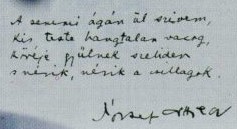 A semmi ágán ül szivem,
kis teste hangtalan vacog,
köréje gyülnek szeliden
s nézik, nézik a csillagok.
József Attila